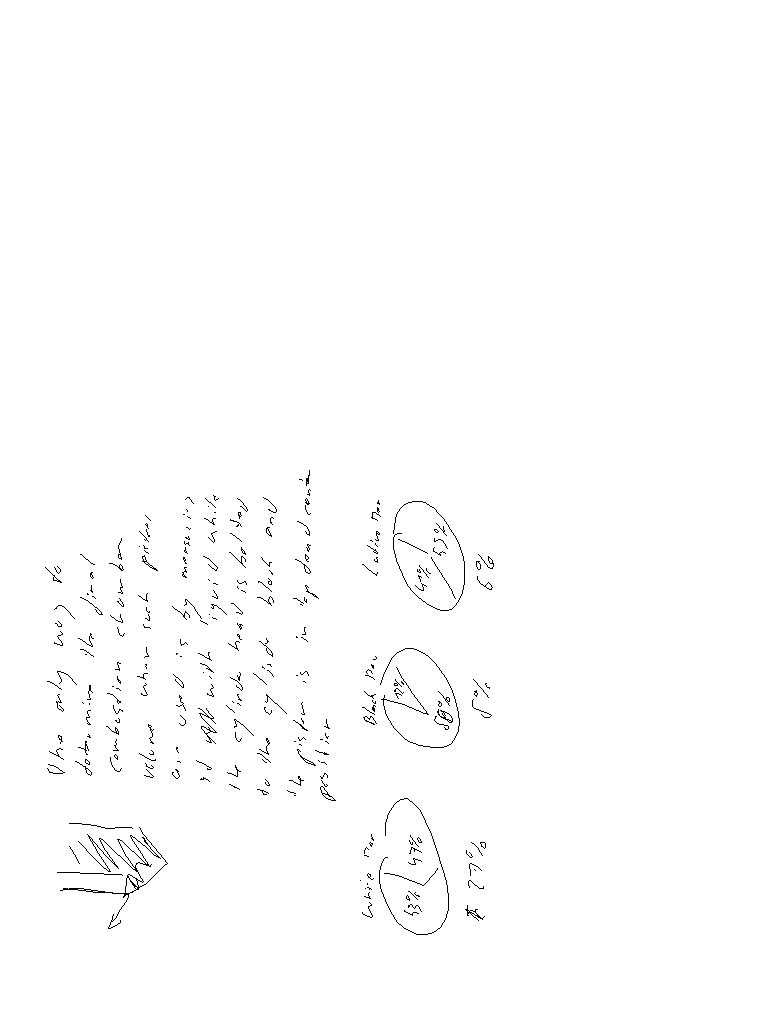 The only way to
determine the final
combustion chamber
volume when such pistons
are used is by measuring
it with liquid while
the cylinder head is bolted
to the cylinder block and
the piston is in top dead centre
position
White Men
53% 47%
27%
Black Men
12%
5%
Latino Men
53%
6%